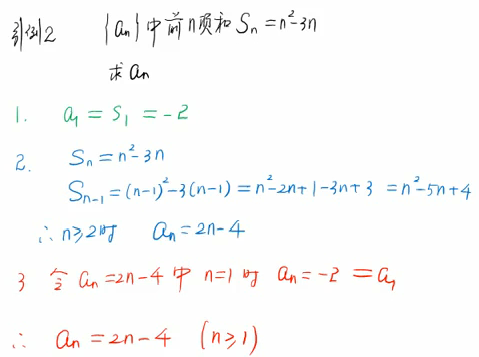 引例2 {aₙ}中前n项和Sₙ=n²-3n
求aₙ
1. a₁=S₁=-2
2. Sₙ=n²-3n
Sₙ₋₁=(n-1)²-3(n-1)=n²-2n+1-3n+3=n²-5n+4
∴n≥2时 aₙ=2n-4
3 令aₙ=2n-4中n=1时aₙ=-2=a₁
∴ aₙ=2n-4 (n≥1)